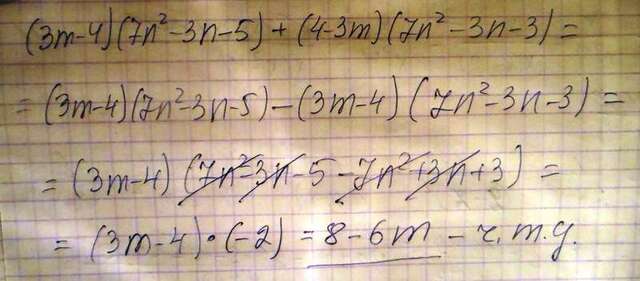 (3m-4)(7n²-3n-5)+(4-3m)(7n²-3n-3)=
=(3m-4)(7n²-3n-5)-(3m-4)(7n²-3n-3)=
=(3m-4)(7n²-3n-5-7n²+3n+3)=
=(3m-4)·(-2)=8-6m - ч.т.д.